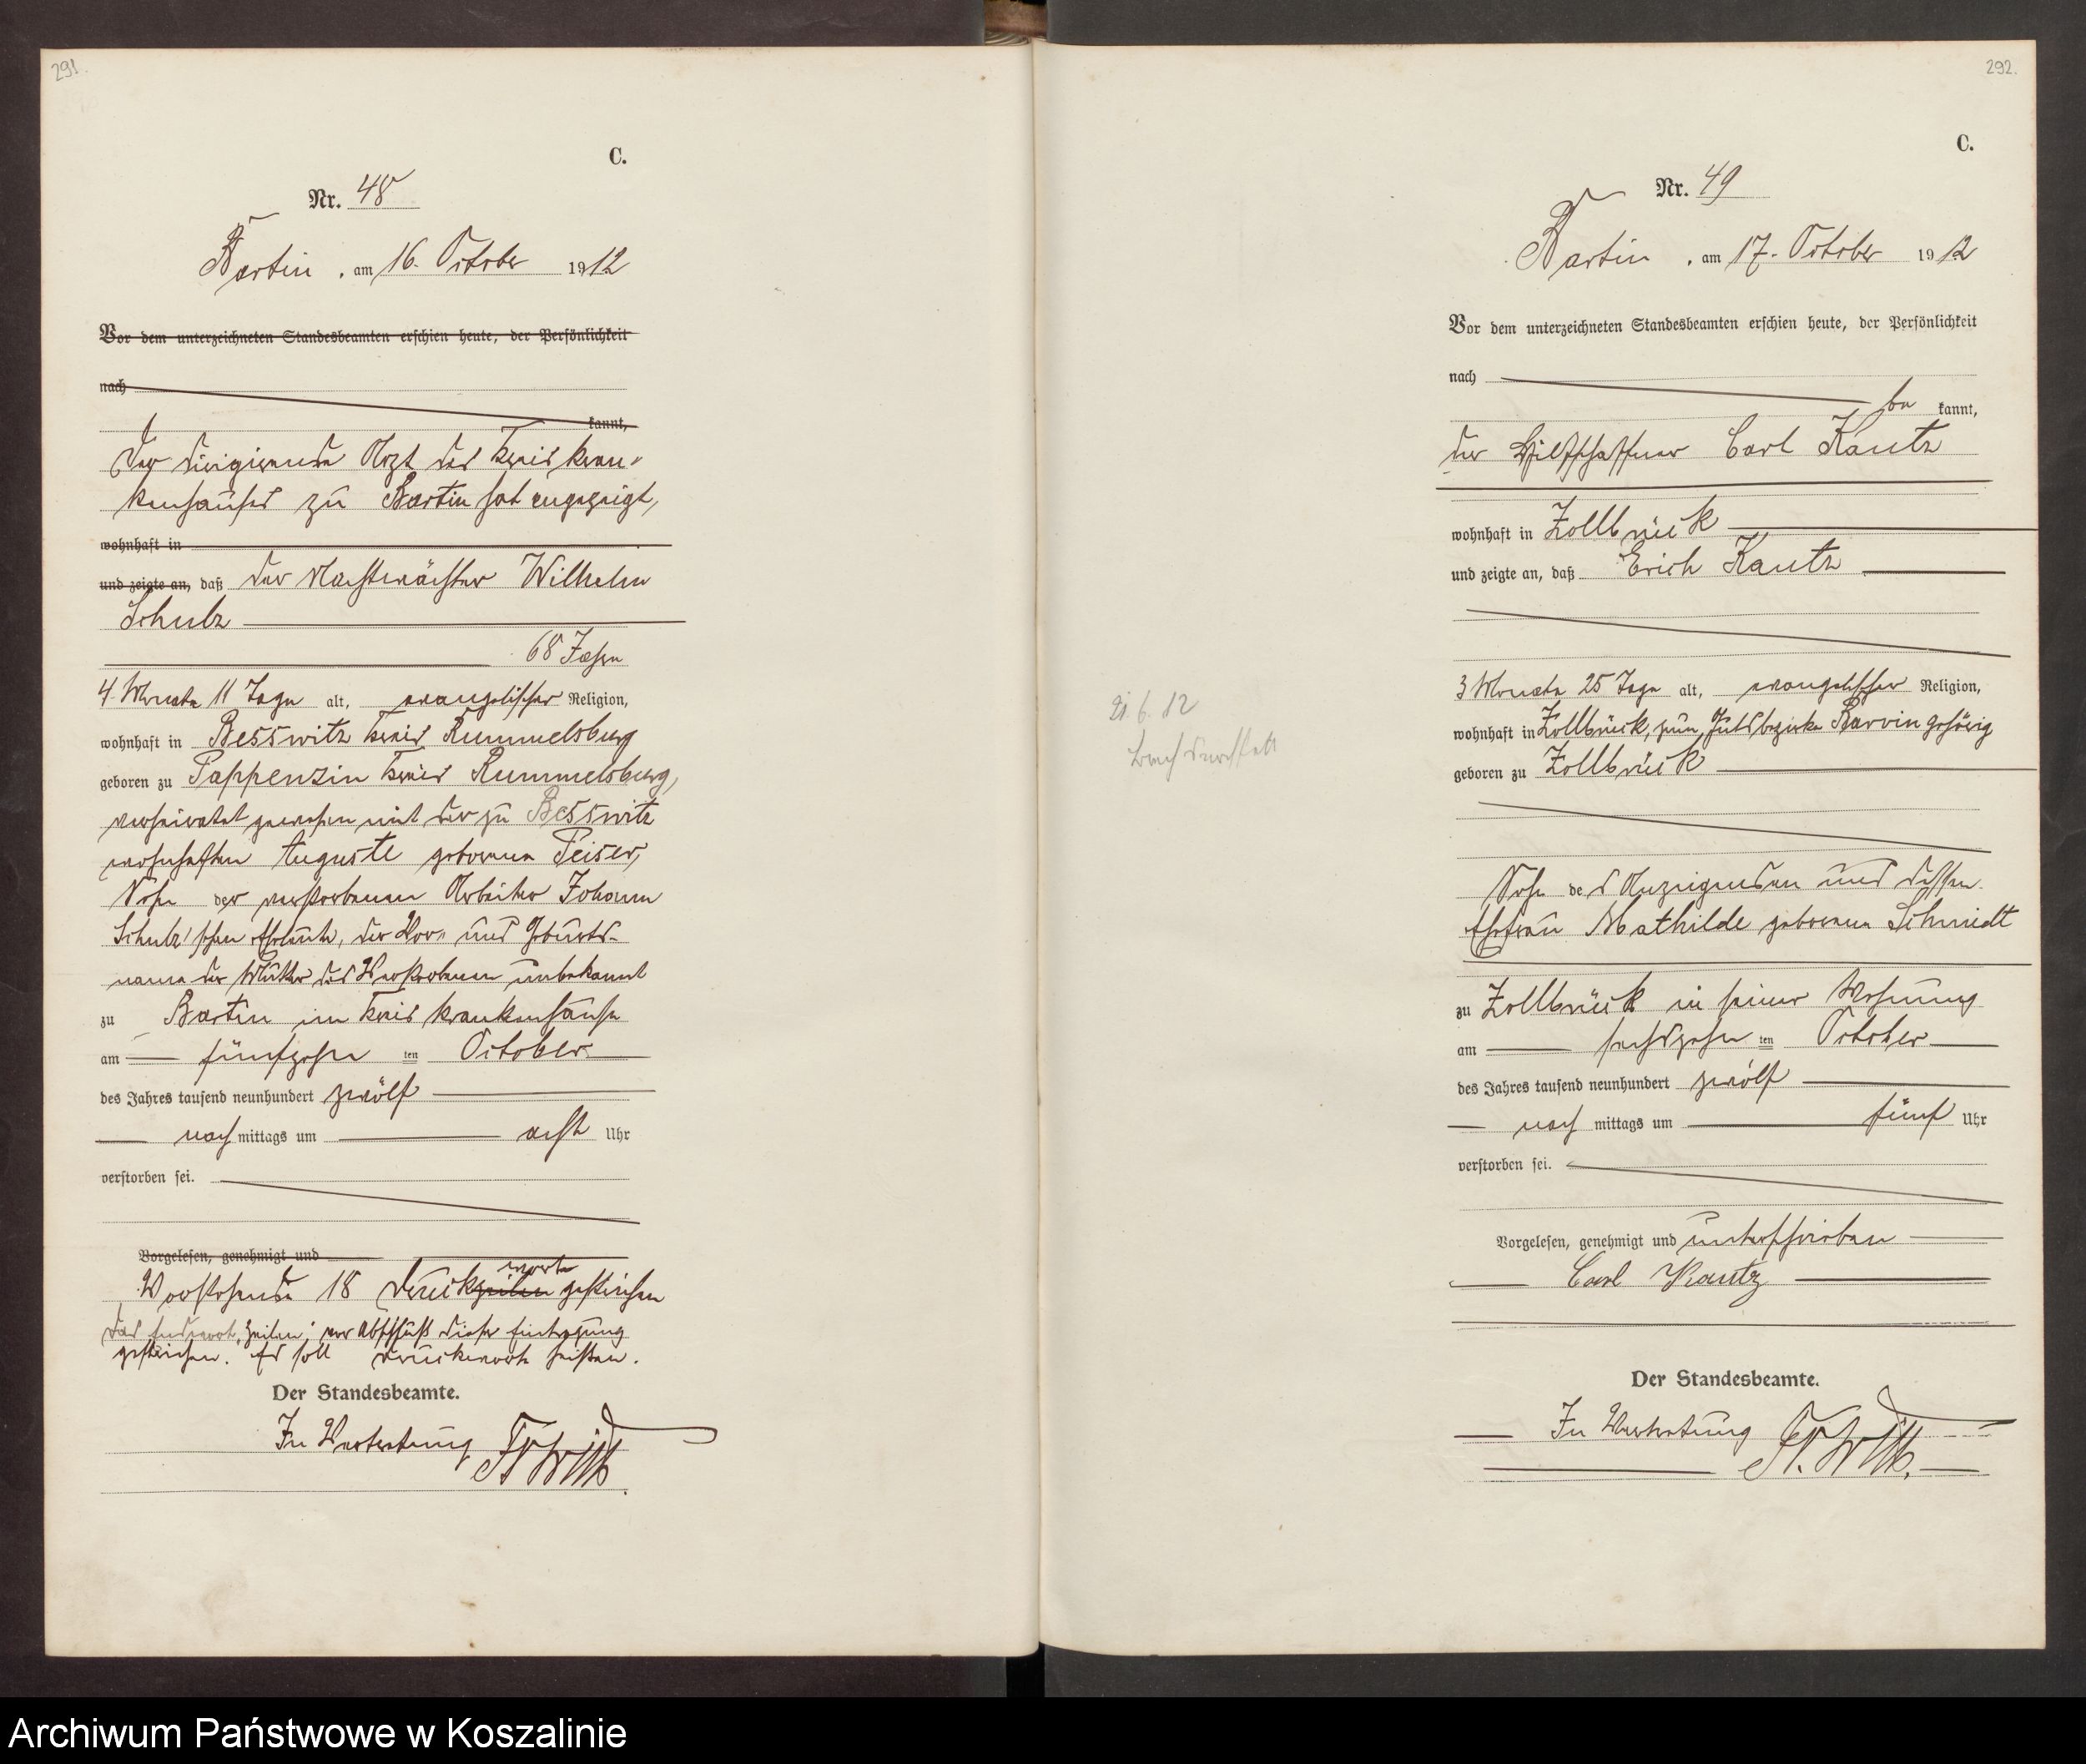 291.
C.
Nr. 48
Bartin, am 16. October 1912
Vor dem unterzeichneten Standesbeamten erschien heute, der Persönlichkeit
nach
kannt,
Der dirigirende Arzt des Kreiskran-
kenhauses zu Bartin hat angezeigt,
wohnhaft in
und zeigte an, daß der Nachtwächter Wilhelm
Schulz
68 Jahre
4 Monate 11 Tage alt, evangelischer Religion,
wohnhaft in Besswitz Kreis Rummelsburg
geboren zu Pappenzin Kreis Rummelsburg,
verheiratet gewesen mit der zu Besswitz
wohnhaften Auguste geborenen Peiser,
Sohn der verstorbenen Arbeiter Johann
Schulz'schen Eheleute, der Vor- und Geburts-
name der Mutter des Verstorbenen unbekannt
zu Bartin im Kreiskrankenhause
am fünfzehnten October
des Jahres tausend neunhundert zwölf
nachmittags um acht Uhr
verstorben sei.
Vorgelesen, genehmigt und
worte
Vorstehende 18 Druckzeilen gestrichen
Das Endwort "Zeilen" vor Abschluß dieser Eintragung
gestrichen. Es soll Druckworte heißen.
Der Standesbeamte.
In Vertretung
292.
C.
Nr. 49
Bartin, am 17. October 1912
Vor dem unterzeichneten Standesbeamten erschien heute, der Persönlichkeit
nach
be kannt,
der Hilfsschaffner Carl Kautz
wohnhaft in Zollbrück
und zeigte an, daß Erich Kautz
3 Monate 25 Tage alt, evangelischer Religion,
wohnhaft in Zollbrück, zum Gutsbezirke Barvin gehörig
geboren zu Zollbrück
Sohn des Anzeigenden und dessen
Ehefrau Mathilde geborenen Schmidt
zu Zollbrück in seiner Wohnung
am sechszehnten October
des Jahres tausend neunhundert zwölf
nachmittags um fünf Uhr
verstorben sei.
Vorgelesen, genehmigt und unterschrieben
Carl Kautz
Der Standesbeamte.
In Vertretung
21. 6. 12
Archiwum Państwowe w Koszalinie